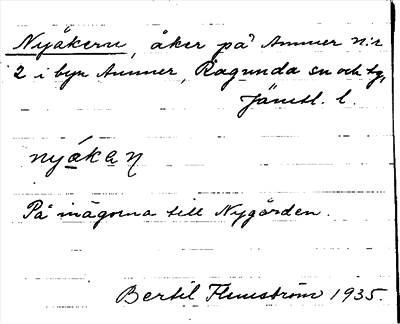 Nyåkern, åker på Ammer N:r
2 i byn Ammer, Ragunda sn och tg,
Jämtl. l.
nyákaɳ
På inägorna till Nygården.
Bertil Flemström 1935.